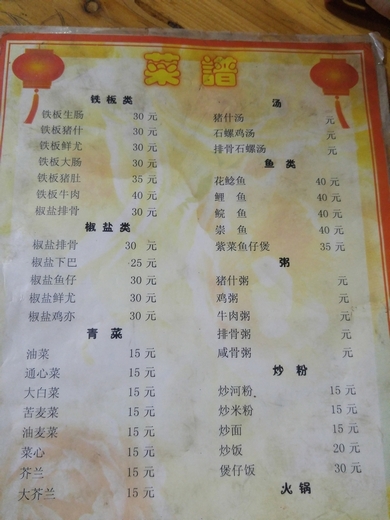 菜譜
铁板类
铁板生肠 30元
铁板猪什 30元
铁板鲜尤 30元
铁板大肠 30元
铁板猪肚 35元
铁板牛肉 40元
椒盐排骨 30元
椒盐类
椒盐排骨 30元
椒盐下巴 25元
椒盐鱼仔 30元
椒盐鲜尤 30元
椒盐鸡亦 30元
青菜
油菜 15元
通心菜 15元
大白菜 15元
苦麦菜 15元
油麦菜 15元
菜心 15元
芥兰 15元
大芥兰 15元
汤
猪什汤 元
石螺鸡汤 元
排骨石螺汤 元
鱼类
花鲶鱼 40元
鲤鱼 40元
鲩鱼 40元
崇鱼 40元
紫菜鱼仔煲 35元
粥
猪什粥 元
鸡粥 元
牛肉粥 元
排骨粥 元
咸骨粥 元
炒粉
炒河粉 15元
炒米粉 15元
炒面 15元
炒饭 20元
煲仔饭 30元
火锅